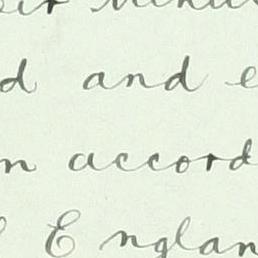 d and e
n accord
England